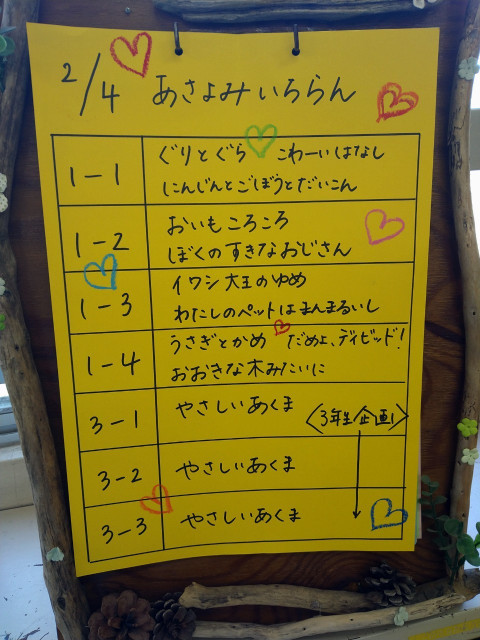 2/4 あさよみいちらん
1-1
ぐりとぐら こわーいはなし
にんじんとごぼうとだいこん
1-2
おいもころころ
ぼくのすきなおじさん
1-3
イワシ大王のゆめ
わたしのペットはまんまるいし
1-4
うさぎとかめ だめよ、デイビッド!
おおきな木みたいに
3-1
やさしいあくま
〈3年生企画〉
3-2
やさしいあくま
3-3
やさしいあくま